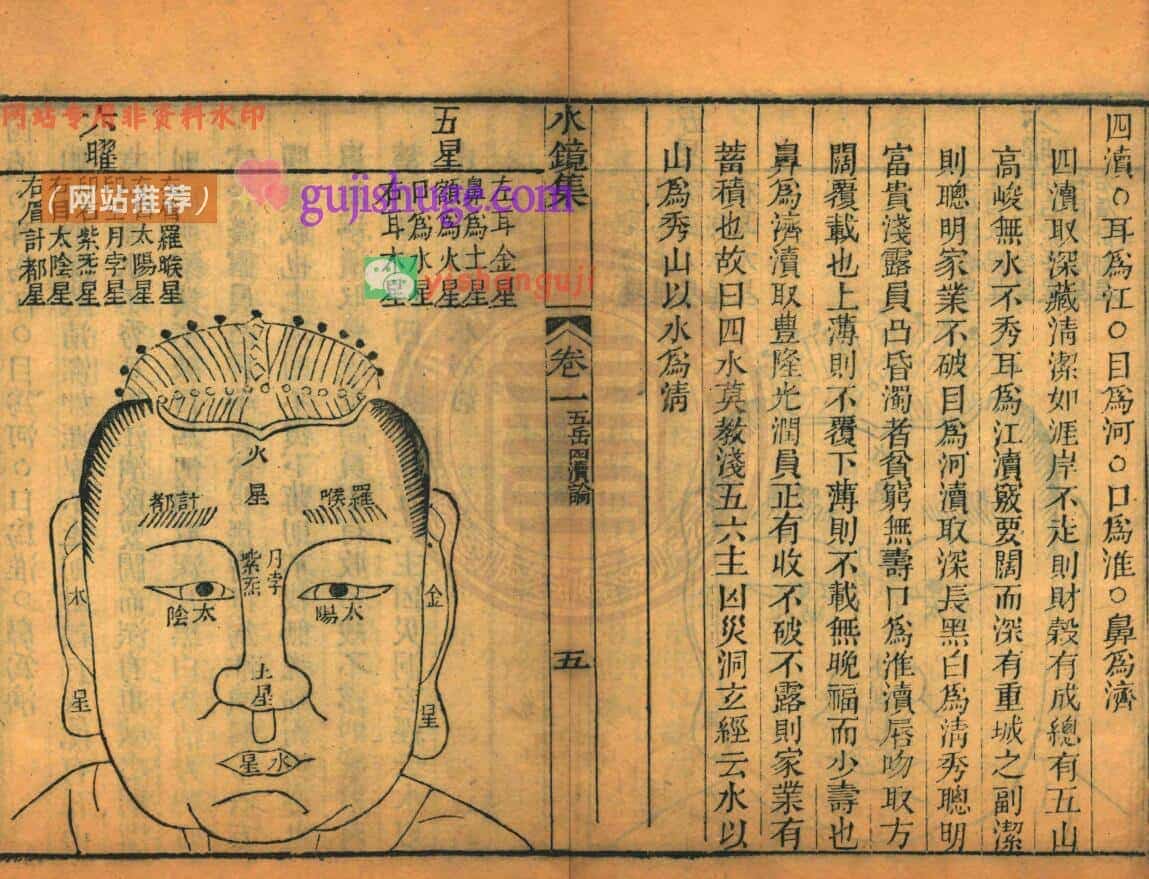 四瀆○耳爲江○目爲河○口爲淮○鼻爲濟
四瀆取深藏清潔如涯岸不走則財穀有成總有五山
高峻無水不秀耳爲江瀆竅要闊而深有重城之副潔
則聰明家業不破目爲河瀆取深長黑白爲清秀聰明
富貴淺露員凸昏濁者貧窮無壽口爲淮瀆唇吻取方
闊覆載也上薄則不覆下薄則不載無晚福而少壽也
鼻爲濟瀆取豊隆光潤員正有收不破不露則家業有
蓄積也故曰四水莫教淺五六主凶災洞玄經云水以
山爲秀山以水爲清
水鏡集
卷一
五岳四瀆論
五
五星
左耳金星
鼻爲土星
額爲火星
口爲水星
右耳木星
六曜
羅睺星
太陽星
月孛星
紫炁星
太陰星
右眉計都星
火星
羅睺
計都
月孛
紫炁
太陽
太陰
金星
木星
土星
水星
网站专用非资料水印
（网站推荐）
gujishuge.com
yishanguji